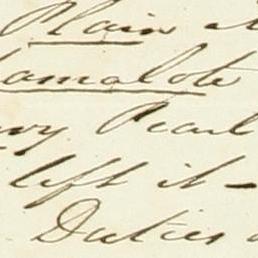 Plain
amalote
Pearl
left it -
Duties